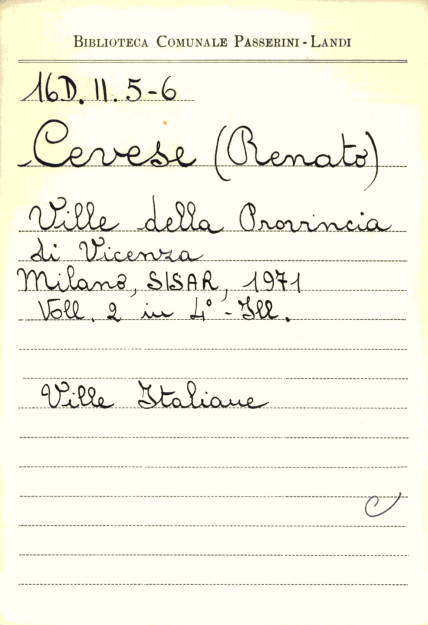 BIBLIOTECA COMUNALE PASSERINI - LANDI
16D. II. 5-6
Cevese (Renato)
Ville della Provincia
di Vicenza
Milano, SISAR, 1971
Voll. 2 in 4° - Ill.
Ville Italiane
C